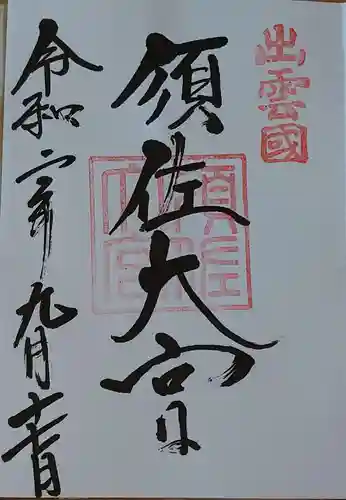 出雲國
須佐大宮
須佐大宮
令和二年九月十七日